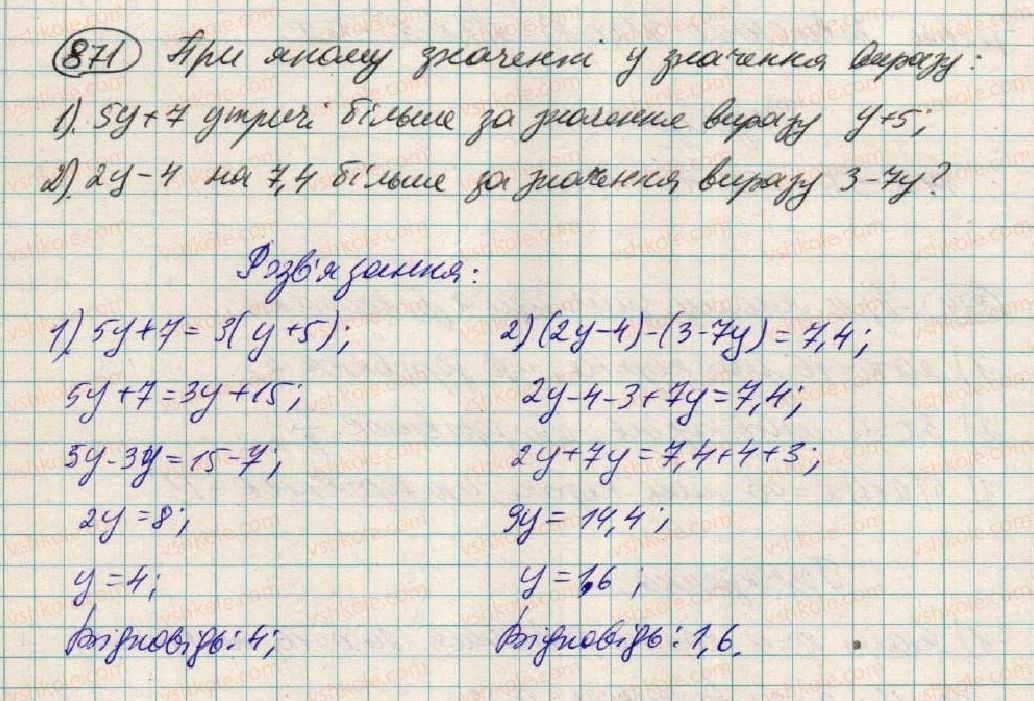 871 При якому значенні y значення виразу:
1). 5y+7 утричі більше за значення виразу y+5;
2). 2y-4 на 7,4 більше за значення виразу 3-7y?
Розв'язання:
1) 5y+7=3(y+5);
5y+7=3y+15;
5y-3y=15-7;
2y=8;
y=4;
Відповідь: 4;
2) (2y-4)-(3-7y)=7,4;
2y-4-3+7y=7,4;
2y+7y=7,4+4+3;
9y=14,4;
y=1,6;
Відповідь: 1,6.